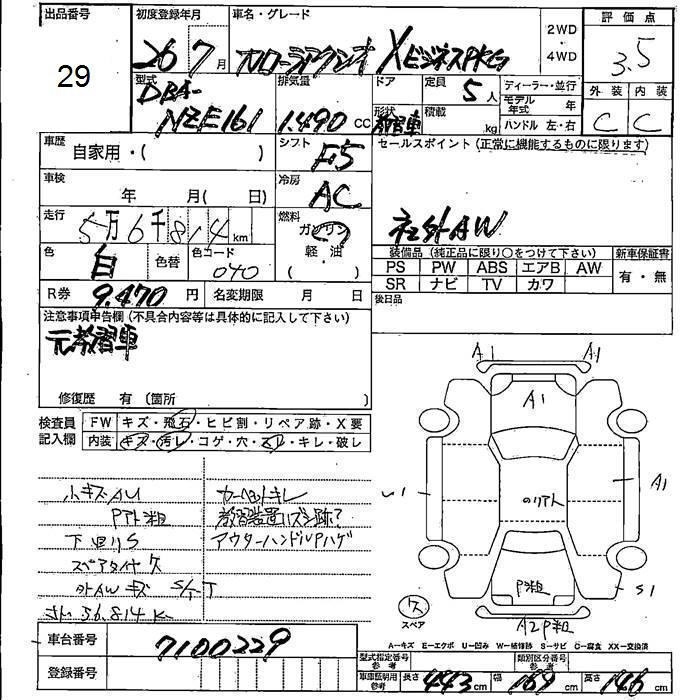 出品番号
29
初度登録年月
26 7月
車名・グレード
カローラアクシオ XビジネスPKG
2WD
・
4WD
評価点
3.5
外装 内装
C C
型式
DBA-
NZE161
排気量
1.490 cc
ドア
形状
教習車
定員
5人
積載
kg
ディーラー・並行
モデル年式 年
ハンドル 左・右
車歴
自家用・( )
シフト
F5
セールスポイント (正常に機能するものに限ります)
社外AW
車検
年 月( 日)
冷房
AC
走行
5万6千814km
燃料
ガソリン
(軽・油)
色
白
色替
色コード
040
装備品(純正品に限り○をつけて下さい)
PS PW ABS エアB AW
SR ナビ TV カワ
新車保証書
有・無
R券
9.470円
名変期限 月 日
後日品
注意事項申告欄(不具合内容等は具体的に記入して下さい)
元教習車
修復歴 有(箇所 )
検査員
記入欄
FW キズ・飛石・ヒビ割・リペア跡・X要
内装 キズ・汚レ・コゲ・穴・スレ・キレ・破レ
小キズAU
下回りS
スペアタイヤ欠
外AWキズ
56.814K
カーペットキレ
教習装置ハズシ跡?
アウターハンドルPハゲ
A1 A1
A1
U1
A1
のりアト
S1
P粗
A2P粗
欠
スペア
車台番号
7100229
登録番号
A-キズ E-エクボ U-凹み W-補修跡 S-サビ C-腐食 XX-交換済
型式指定番号
参考
類別区分番号
参考
車庫証明用
参考
長さ 443cm
幅 169cm
高さ 146cm